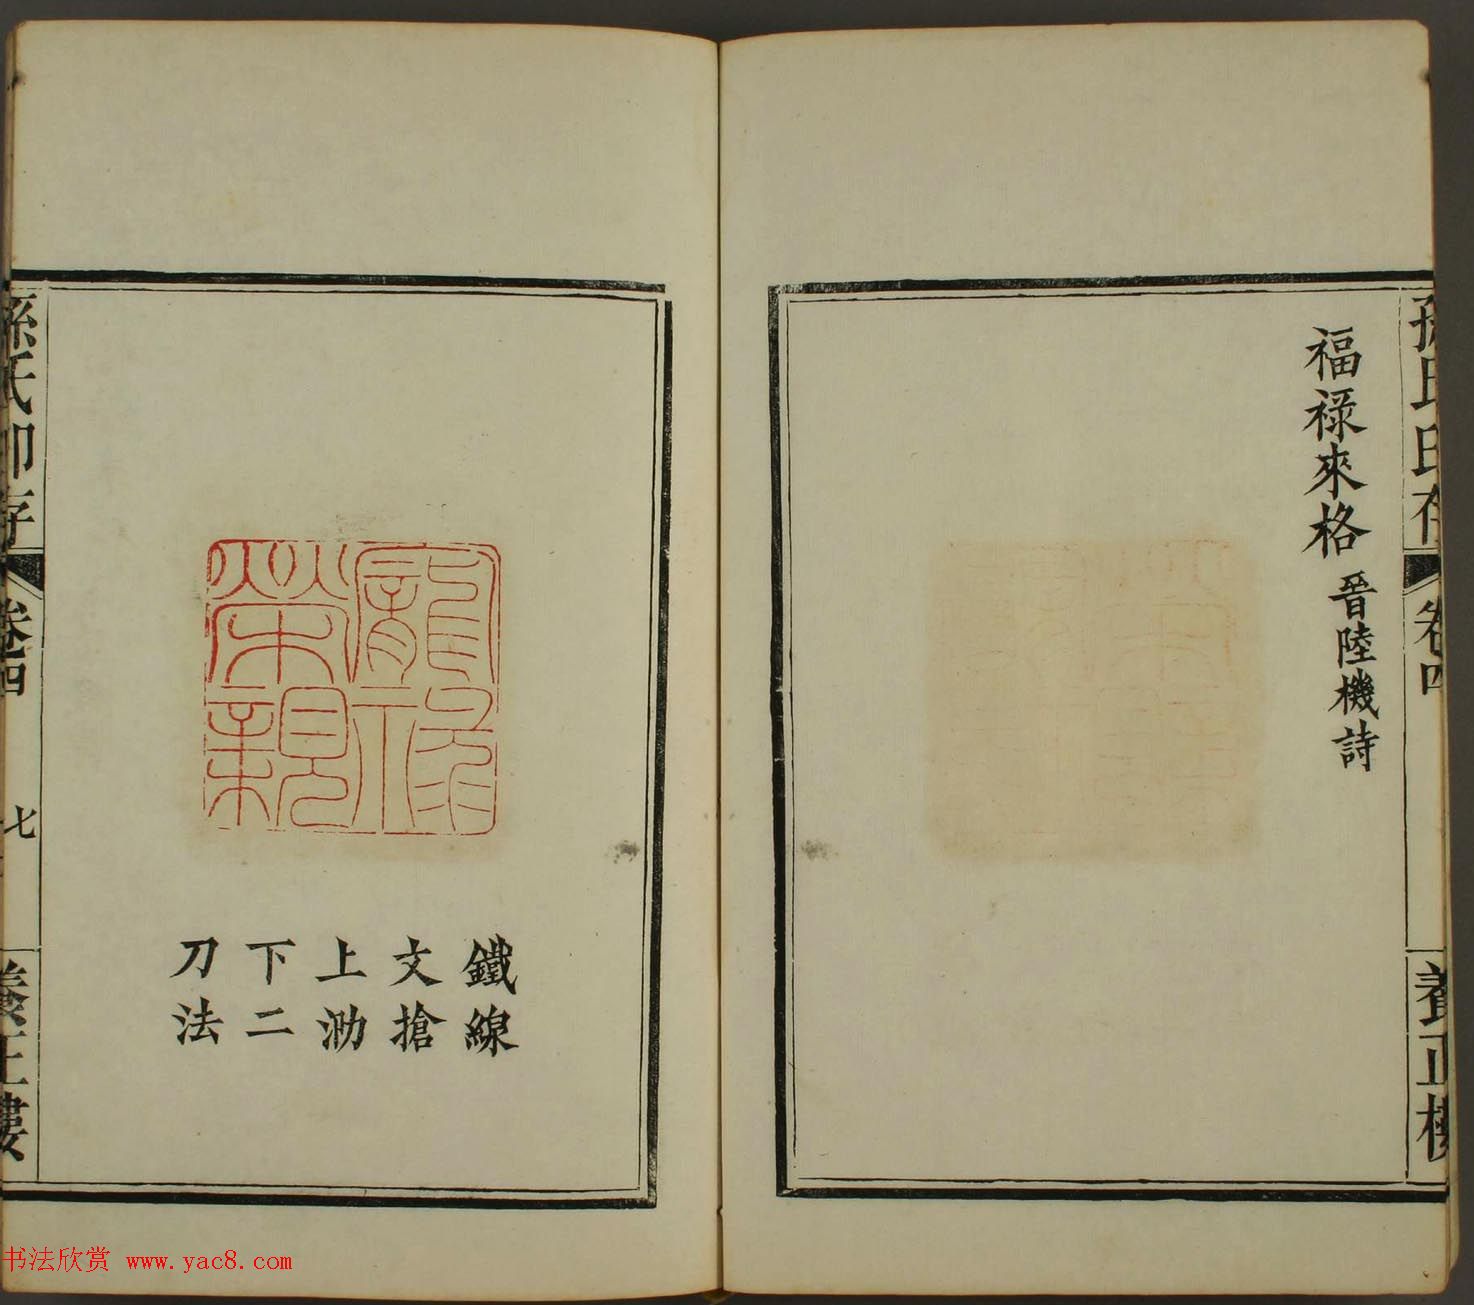 孫氏印存
卷四
養正樓
福祿來格
晉陸機詩
寵祿
榮親
鐵線
文搶
上泐
下二
刀法
孫氏印存
卷四
七
養正樓
书法欣赏 www.yac8.com